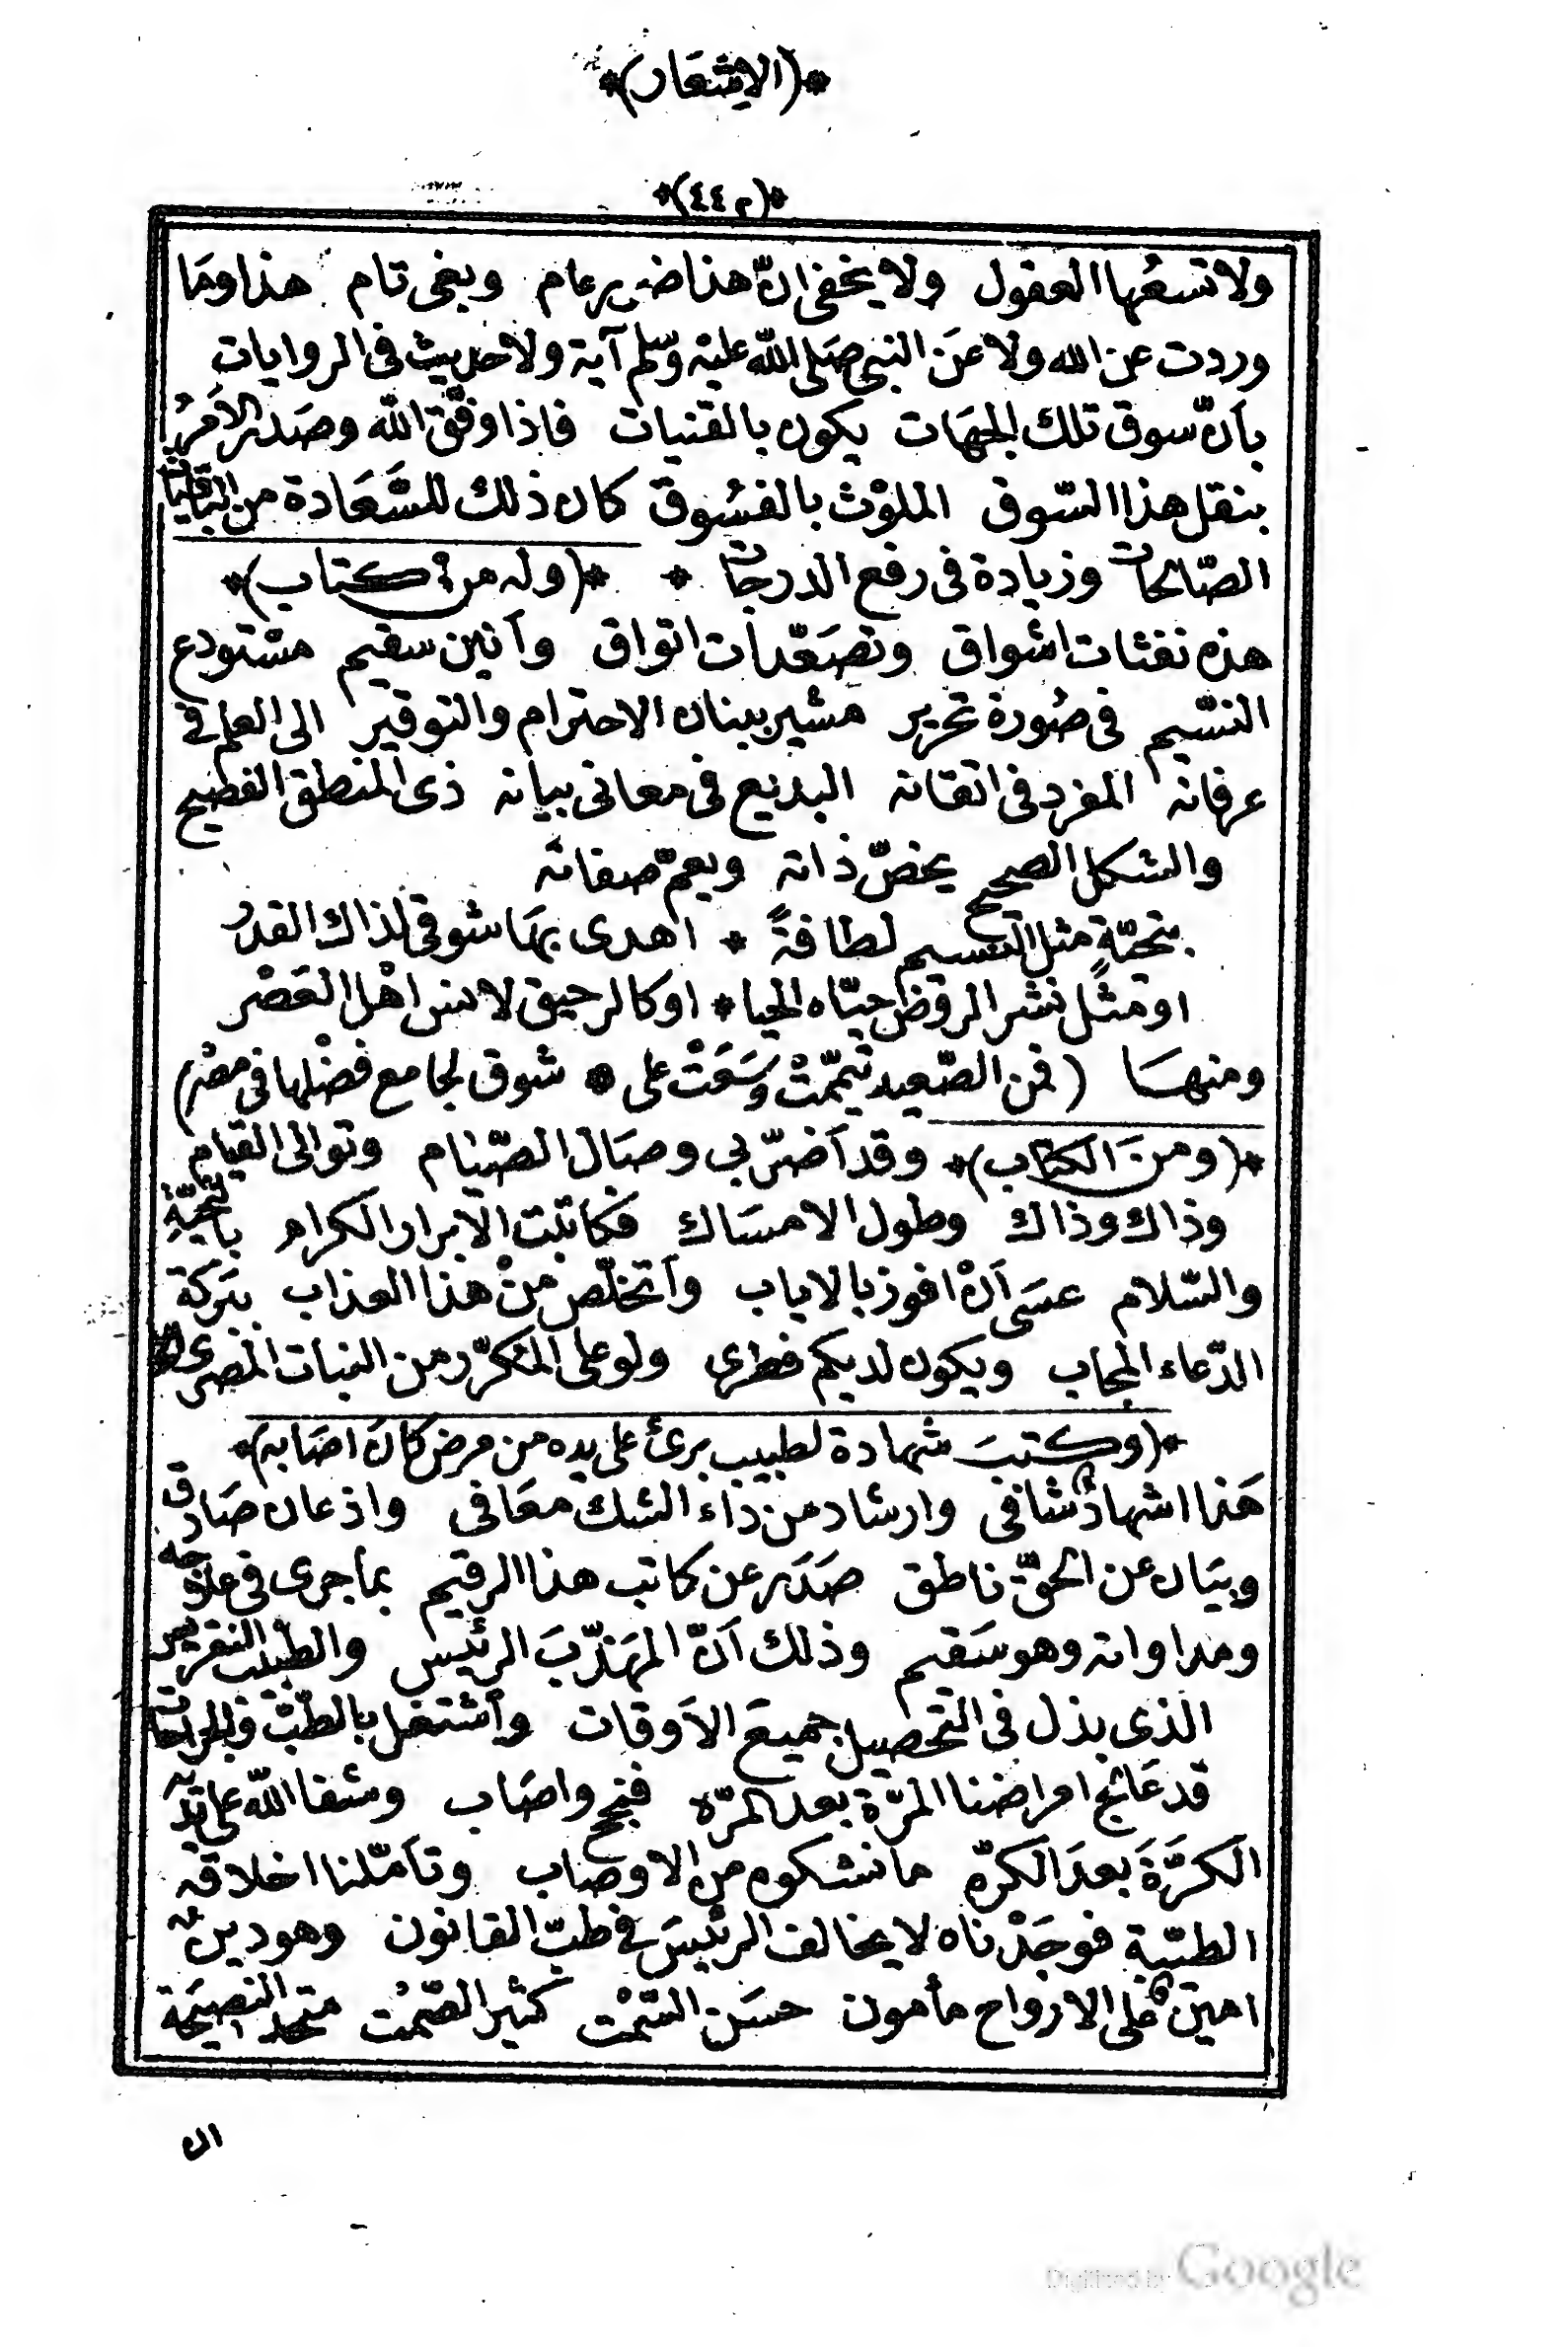 *(الاشعار)*
*(٤٤٢)*
ولا تسعها العقول ولا يخفى انّ هذا ضرر عام وبغى تام هذا وما
وردت عن الله ولا عن النبى صلى الله عليه وسلم آية ولا حديث فى الروايات
بأنّ سوق تلك الجهات يكون بالقنيات فاذا وفّق الله وصدر الأمرُ
بنقل هذا السّوق الملوّث بالفسُوق كان ذلك للسَّعَادة من الباقيات
الصّالحات وزيادة فى رفع الدرجات * *(وله من كتاب)*
هذه نفثات اشواق وتصَعّدات اتواق وأنين سقيم مسْتودع
النسّيم فى صُورة تحرير مشير ببنان الاحترام والتوقير الى العلم فى
عرفانه المفرد فى اتقانه البديع فى معانى بيانه ذى المنطق الفصيح
والشكل الصحيح يخصّ ذاته ويعمّ صفاته
بتحيّةٍ مثل النسيم لطافةً * اهدى بهَا شوقى لذاك القدرُ
او مثل نشر الروض حيّاه الحيا * او كالرحيق لا نس اهْل العَصْر
ومنهسا (فمن الصّعيد تيمّمتْ وسَعَتْ على * شوق لجامع فضْلها فى مصْر)
*(ومن الكتاب)* وقد أضرّ بى وصَال الصّيَام وتوالى القيام
وذاك وذاك وطول الامسَاك فكاتبت الابرار الكرام بالتحيّة
والسّلام عسَى أنْ افوز بالاياب وأتخلّص منْ هذا العذاب ببَركة
الدّعاء المجاب ويكون لديكم فطرى ولو على المكرّر من النبات المصرى
*(وكتبَ شهادة لطبيب برئ على يده من مرض كان اصَابه)*
هَذا اشهادٌ شافى وارشاد من داء الشك معَافى واذعان صَادق
وبيَان عن الحقّ ناطق صَدَر عن كاتب هذا الرقيم بما جرى فى علاجه
ومداواته وهو سَقيم وذلك أنّ المهَذّبَ الرئيس والطبيب النقريس
الذى بذل فى التحصيل جميعَ الأوقات وأشتغل بالطبّ والجراحات
قد عَالج امراضنا المرّة بعد المرّه فنجح واصَاب وشفا الله على يديه
الكرَّةَ بعدَ الكرّه ما نشكوه من الاوصاب وتأمّلنا اخلاقه
الطيّبة فوجَدْناه لا يخالف الرئيسَ فى طبّ القانون وهو ديّن
امينٌ على الارواح مأمون حسَن السّمْت كثير الصّمْت متحد النصيحَة
ان
Digitized by Google